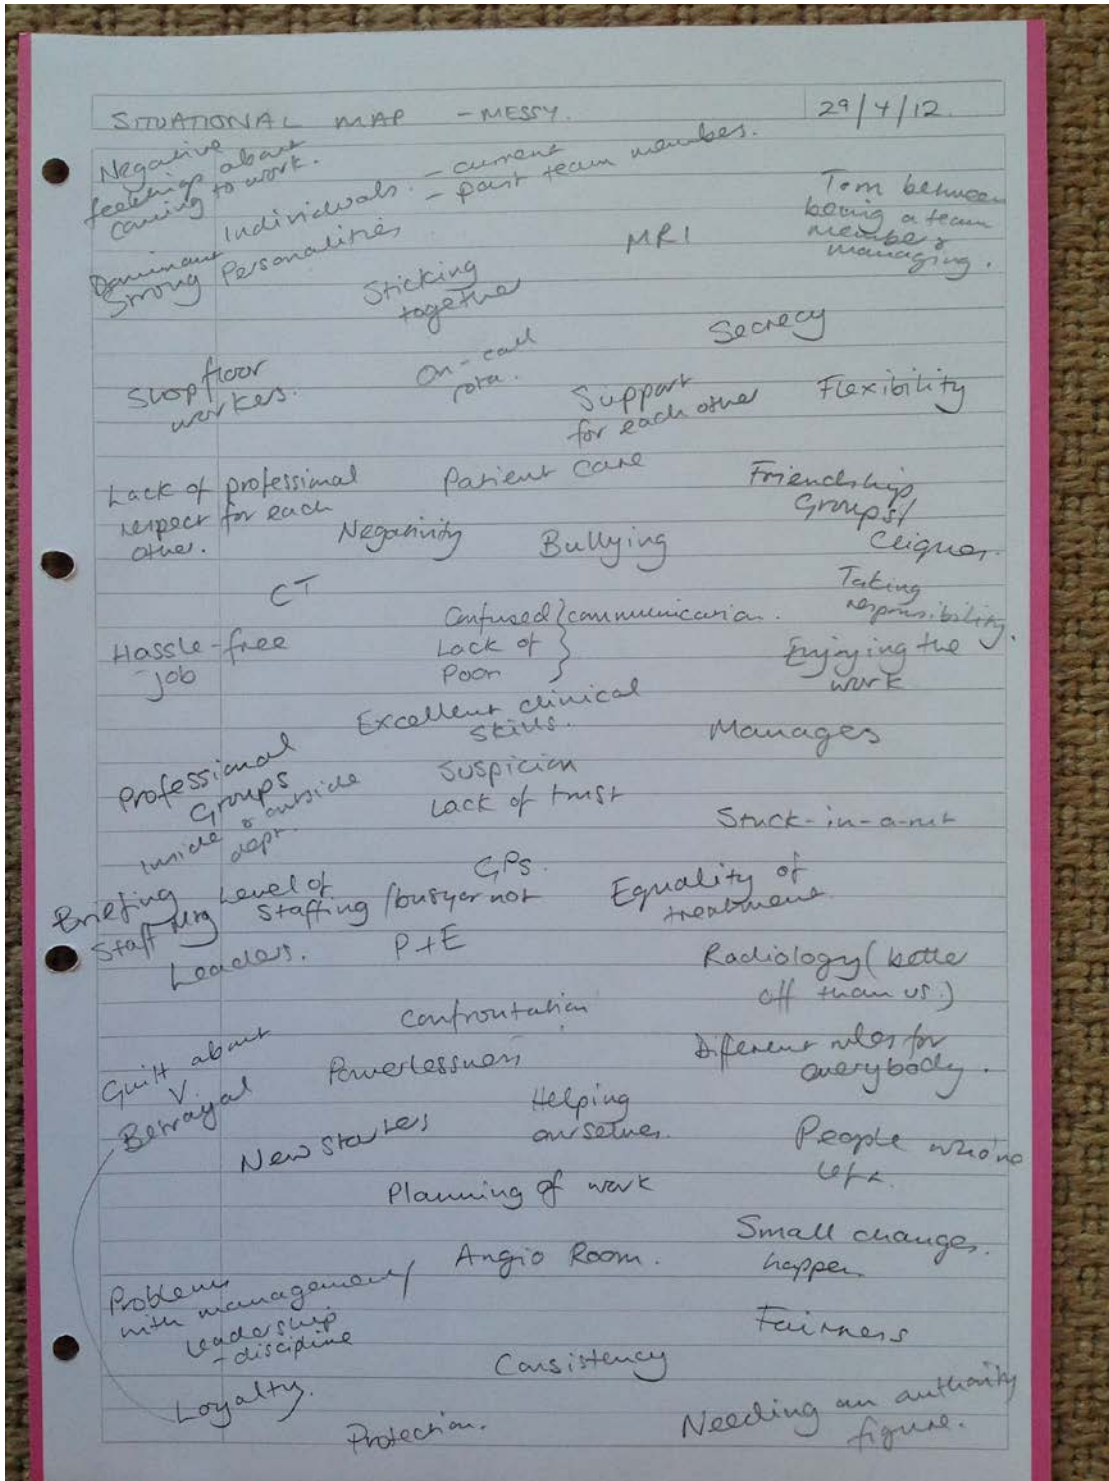 SITUATIONAL MAP - MESSY.
29/4/12
Negative
feelings about
coming to work.
Individuals. - current
- past team members.
Torn between
being a team
member &
managing.
MRI
Dominant
Strong Personalities
Sticking
together
Secrecy
Shopfloor
workers.
On-call
rota.
Support
for each other
Flexibility
Lack of professional
respect for each
other.
Patient care
Friendship
Groups/
Cliques.
Negativity
Bullying
CT
Taking
responsibility.
Confused } communication.
Lack of
Poor
Hassle-free
job
Enjoying the
work
Excellent clinical
skills.
Managers
Professional
Groups
inside & outside
dept.
Suspicion
Lack of trust
Stuck-in-a-rut
GPs.
Briefing
Staff Mtg
Level of
Staffing / busy or not
Equality of
treatment.
Leaders.
P+E
Radiology (better
off than us.)
Confrontation
Guilt about
V.
Betrayal
Powerlessness
Different rules for
everybody.
Helping
ourselves.
New Starters
People who've
left.
Planning of work
Small changes.
happen
Angio Room.
Problems
with management/
leadership
- discipline
Fairness
Consistency
Loyalty.
Needing an authority
figure.
Protection.